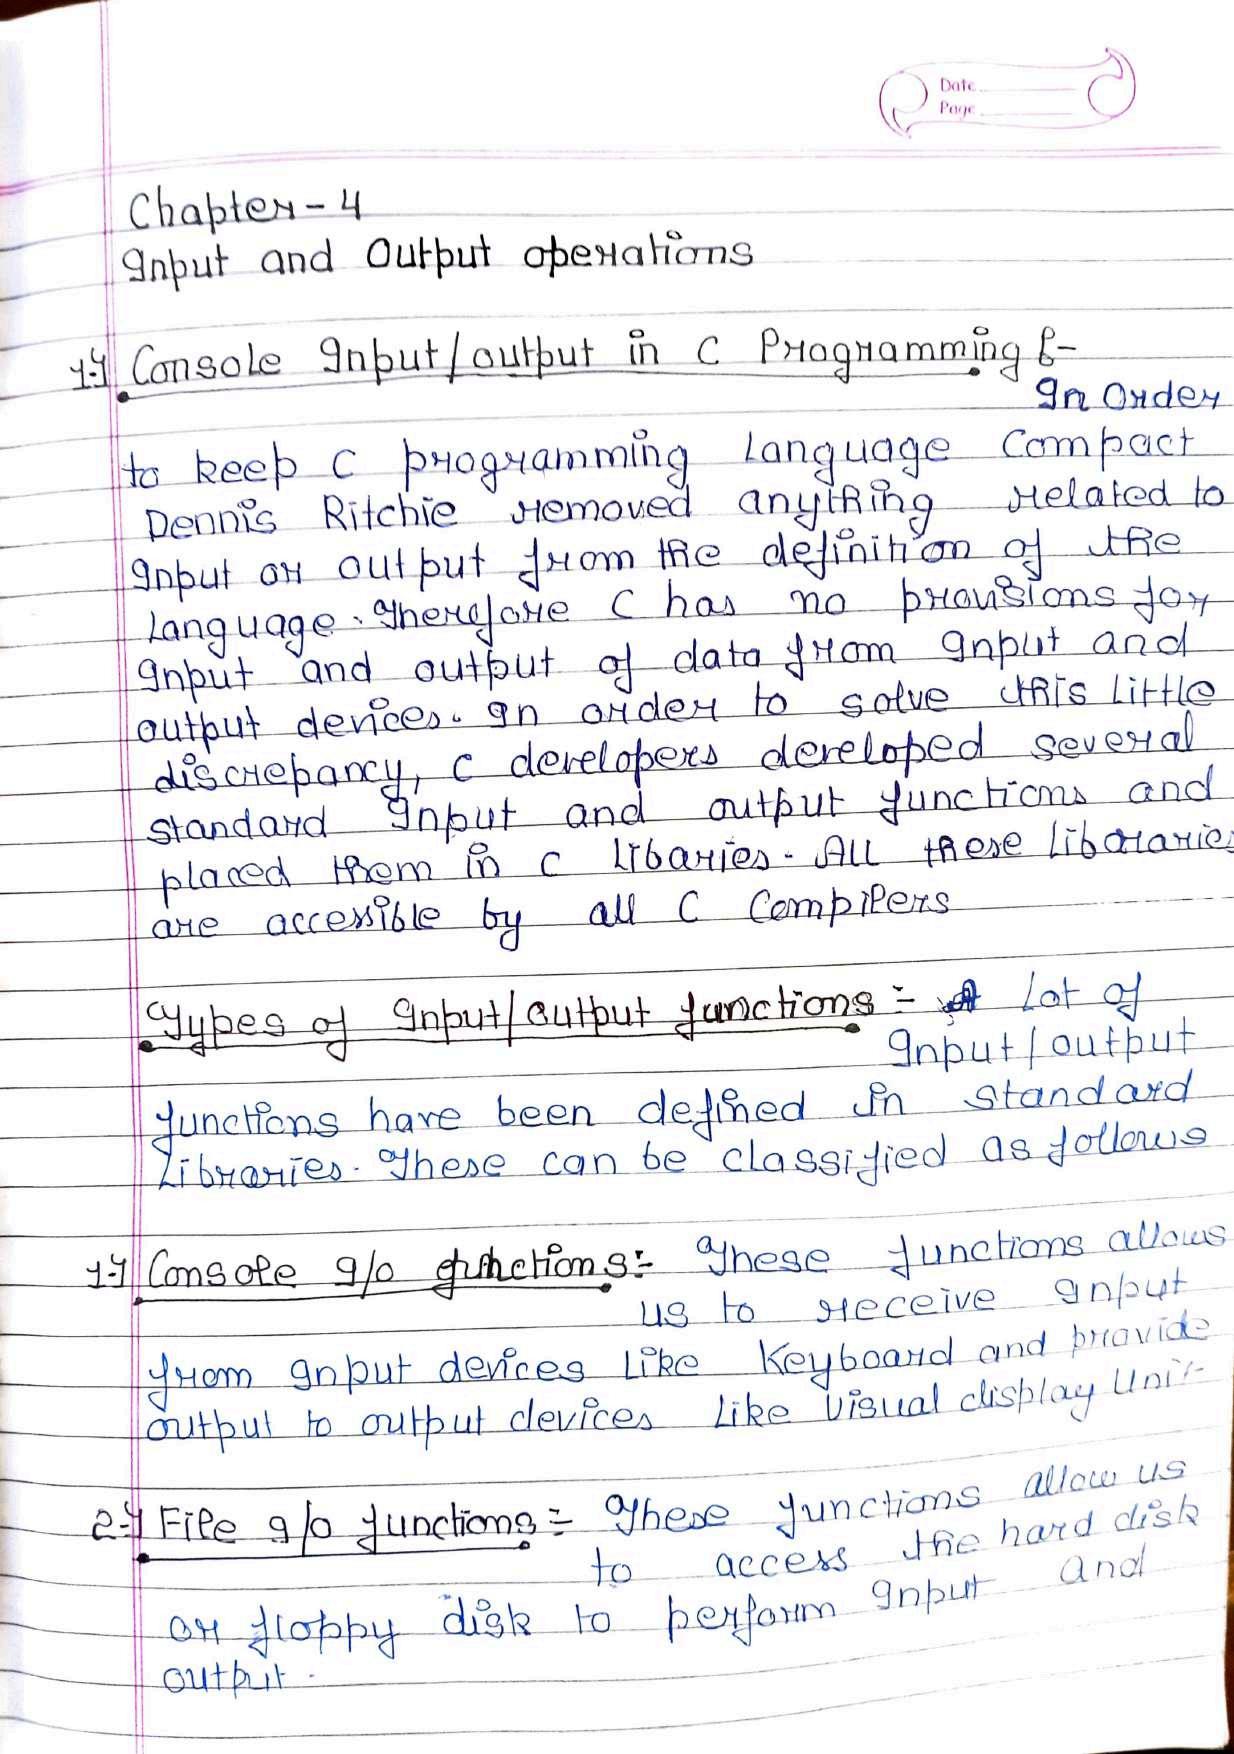 Date
Page
Chapter-4
Input and Output operations
1.) Console Input/output in C Programming :-
In Order
to keep C programming language Compact
Dennis Ritchie removed anything related to
Input or output from the definition of the
language. Therefore C has no provisions for
Input and output of data from Input and
output devices. In order to solve this little
discrepancy, C developers developed several
standard Input and output functions and
placed them in C libaries. All these liboraries
are accessible by all C Compilers
Types of Input/output functions :- A lot of
Input/output
functions have been defined in standard
Libraries. These can be classified as follows
1.) Console I/O functions:- These functions allows
us to receive Input
from Input devices like Keyboard and provide
output to output devices like Visual display Unit
2.) File I/O functions :- These functions allow us
to access the hard disk
or floppy disk to perform Input and
output.